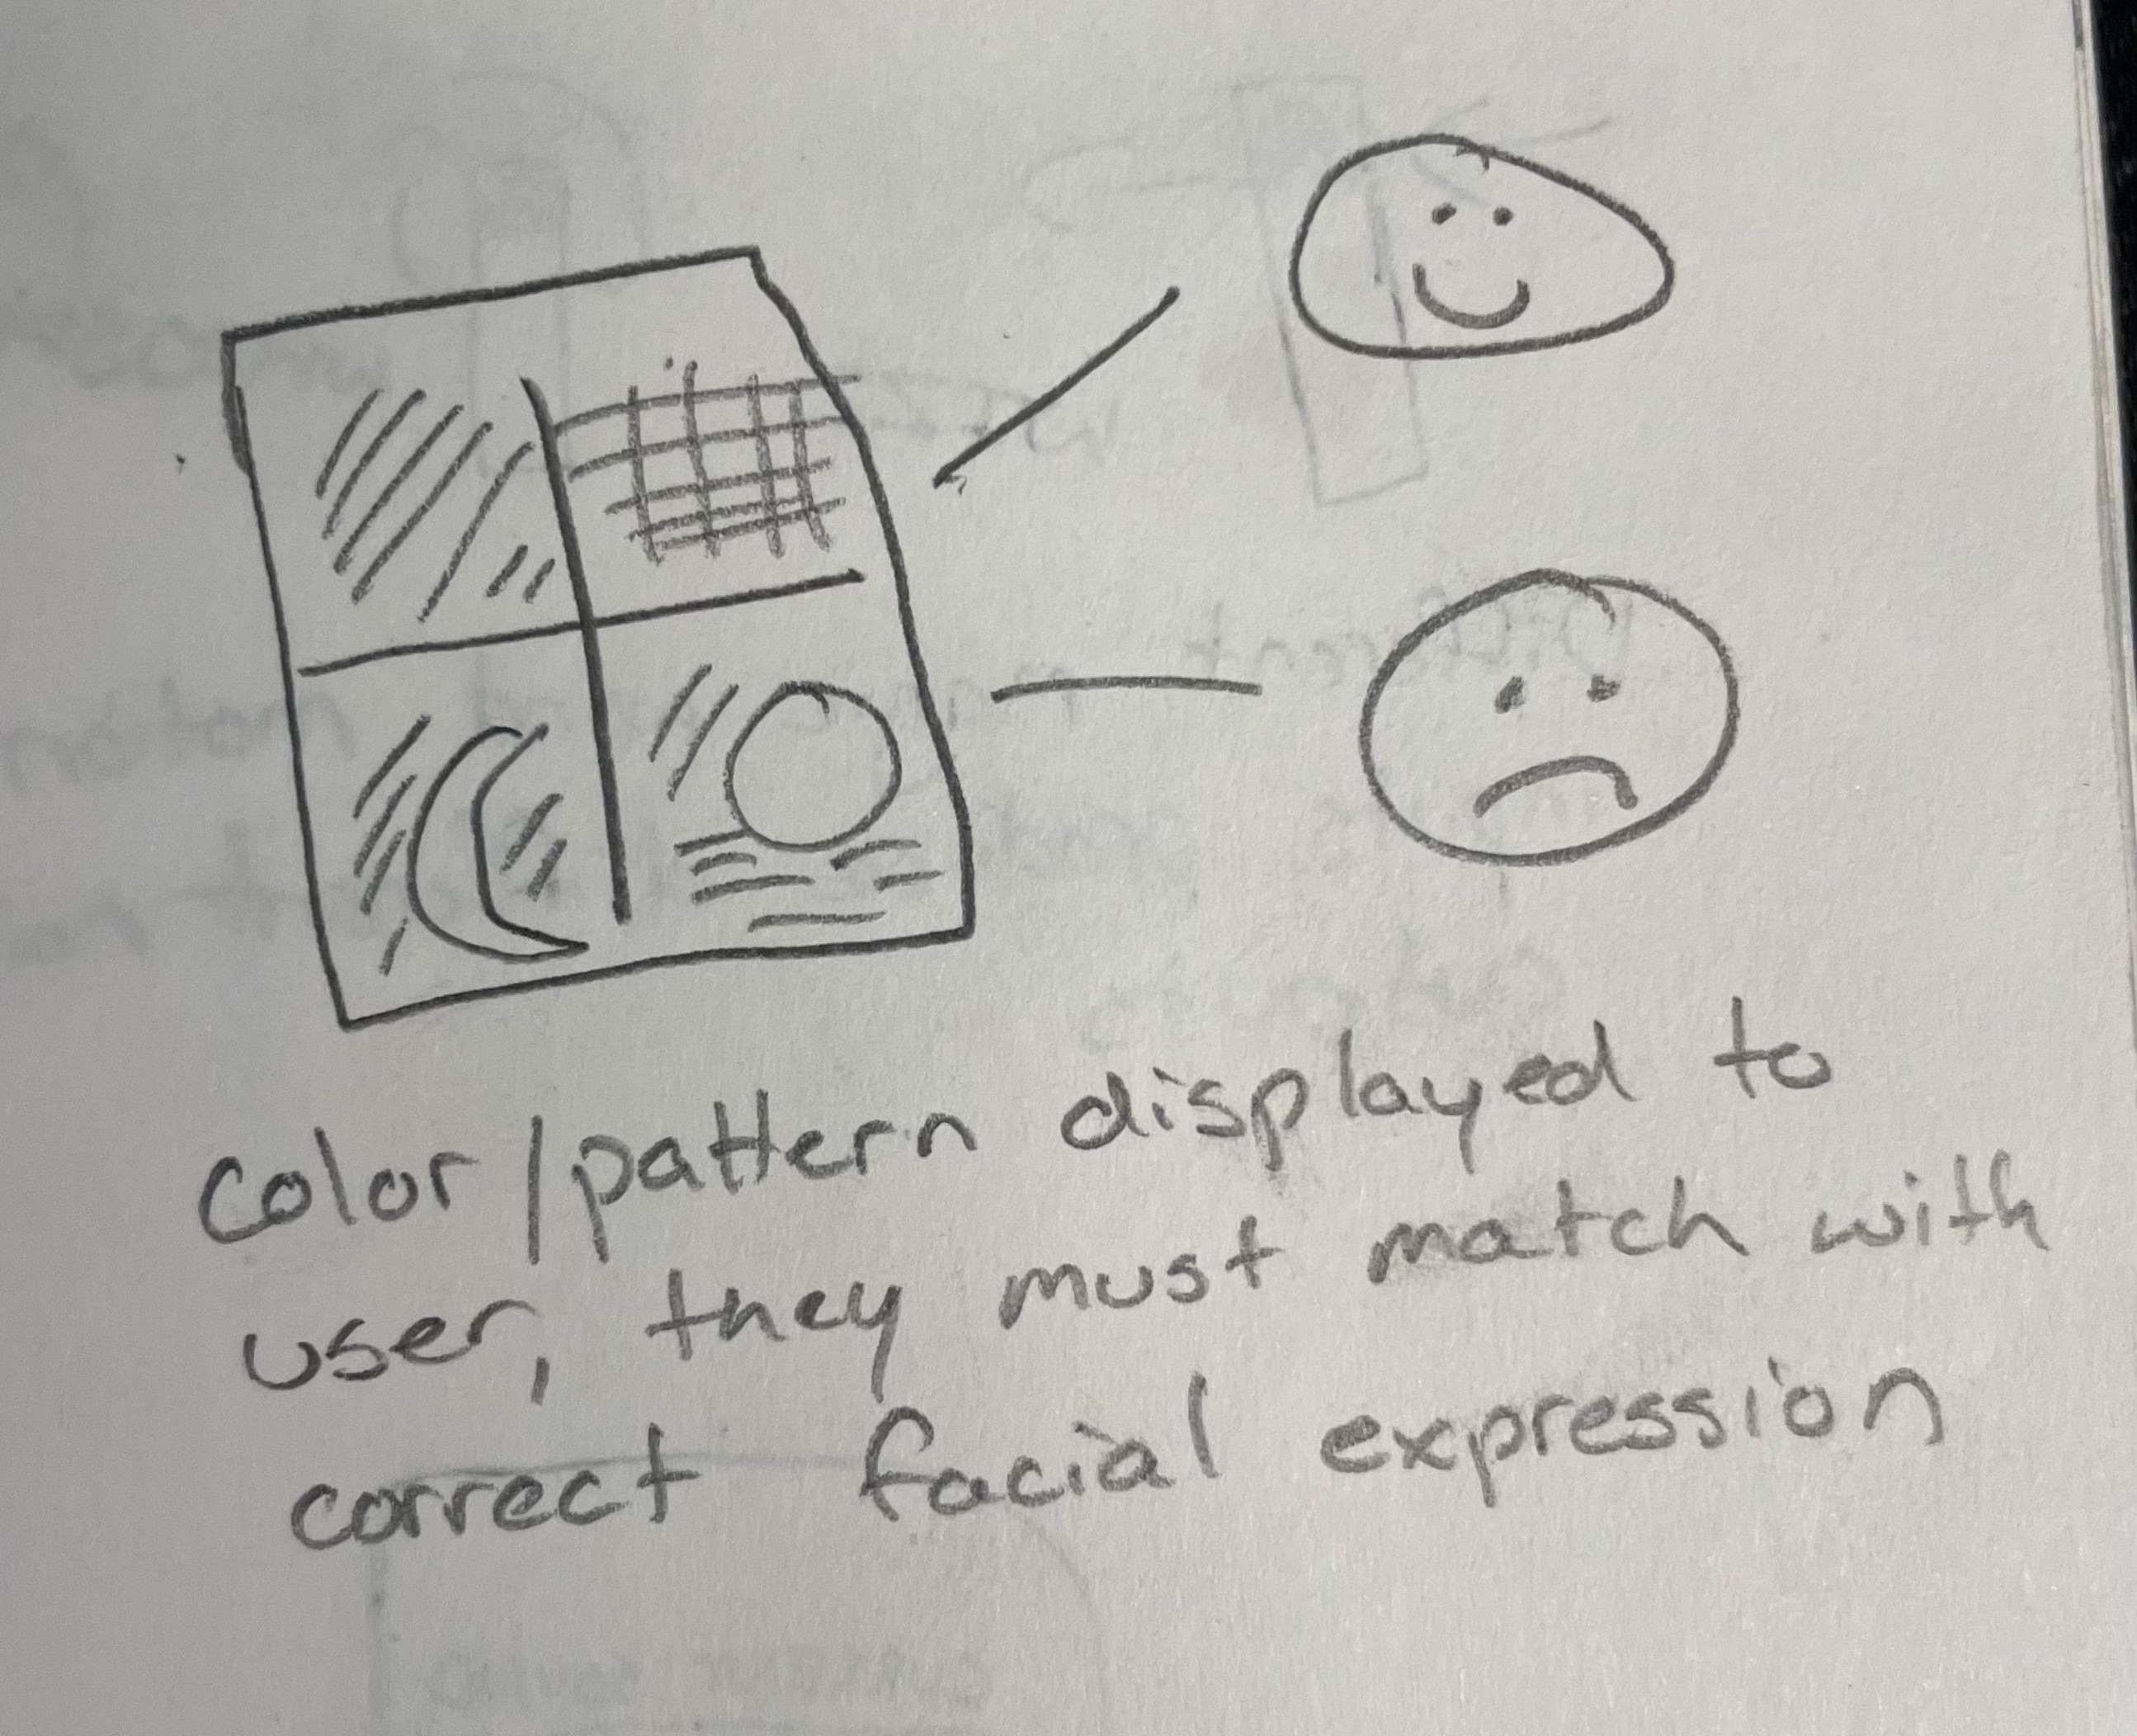 color/pattern displayed to
user, they must match with
correct facial expression